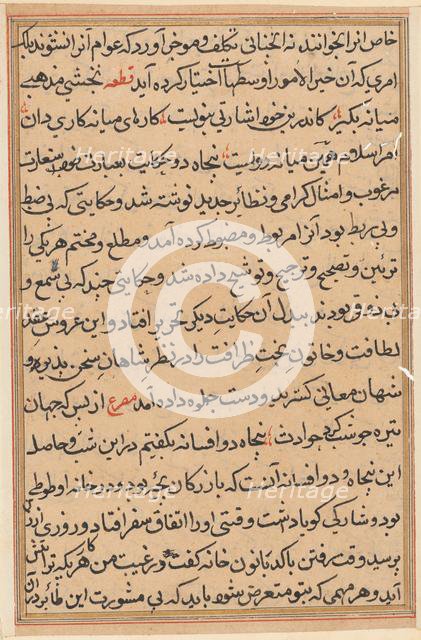 خاص انرا بخوانند نه انچنانی بتکلف و موخر آورد که عوام آنرا نشنوند بلکه
امری که آن خیر الامور اوسطها اختیار کرده آید قطعه نخشبی مذهبی
میانه بگیر کاندرین خود اشارتی نبویست کارهای میانه کاری دان
همین میانه رویست پنجاه دو حکایت بعبارت خوب
مرغوب و امثال گرامی و نظائر جدید نوشته شد و حکایتی که بی ضبط
و بی ربط بود آنرا مربوط و مضبوط کرده آمد و مطلع و مختم هر یکی را
تزئین و تصحیح و ترجیح و توشیح داده شد و حکایتی چند که بی سمع و
بودند بدل آن حکایت دیگر تحریر افتاد و این عروس مهد
لطافت و خاتون تخت ظرافت را در نظر شاهان سخن پذیر و
شهان معانی گستر بدو دست جلوه داده آمد مصرع از بس که جهان
تیره چو شب کرد حوادث پنجاه دو افسانه بگفتیم در این شب و حاصل
این پنجاه و دو افسانه آنست که بازرگان بچه بود و در خانه او طوطی
بود و شارکی گویا داشت وقتی او را اتفاق سفر افتاد و روزی
وقت رفتن با کدبانون خانه گفت در غیبت من هر یک کار ترا پیش
آید و هر مهمی که بتو متعرض شود باید که بی مشورت این طائر
Heritage Images